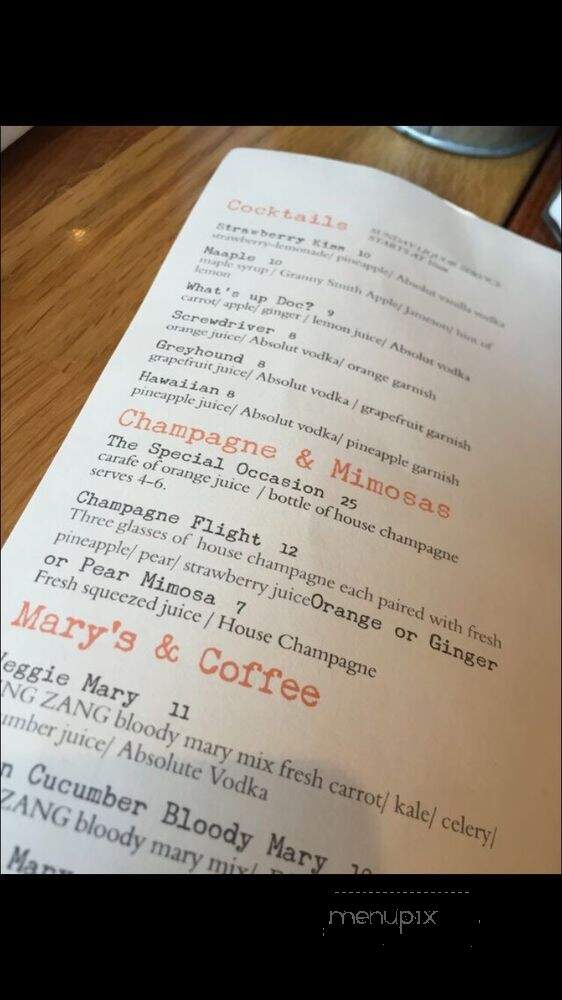 Cocktails
SUNDAY LIQUOR SERVICE
STARTS AT
Strawberry Kiss 10
strawberry-lemonade/ pineapple/ Absolut vanilla vodka
Maaple 10
maple syrup / Granny Smith Apple/ Jameson/ hint of
lemon
What's up Doc? 9
carrot/ apple/ ginger / lemon juice/ Absolut vodka
Screwdriver 8
orange juice/ Absolut vodka/ orange garnish
Greyhound 8
grapefruit juice/ Absolut vodka / grapefruit garnish
Hawaiian 8
pineapple juice/ Absolut vodka/ pineapple garnish
Champagne & Mimosas
The Special Occasion 25
carafe of orange juice / bottle of house champagne
serves 4-6.
Champagne Flight 12
Three glasses of house champagne each paired with fresh
pineapple/ pear/ strawberry juiceOrange or Ginger
or Pear Mimosa 7
Fresh squeezed juice / House Champagne
Mary's & Coffee
Veggie Mary 11
NG ZANG bloody mary mix fresh carrot/ kale/ celery/
umber juice/ Absolute Vodka
n Cucumber Bloody Mary
ZANG bloody mary mix/
Mary
menupix